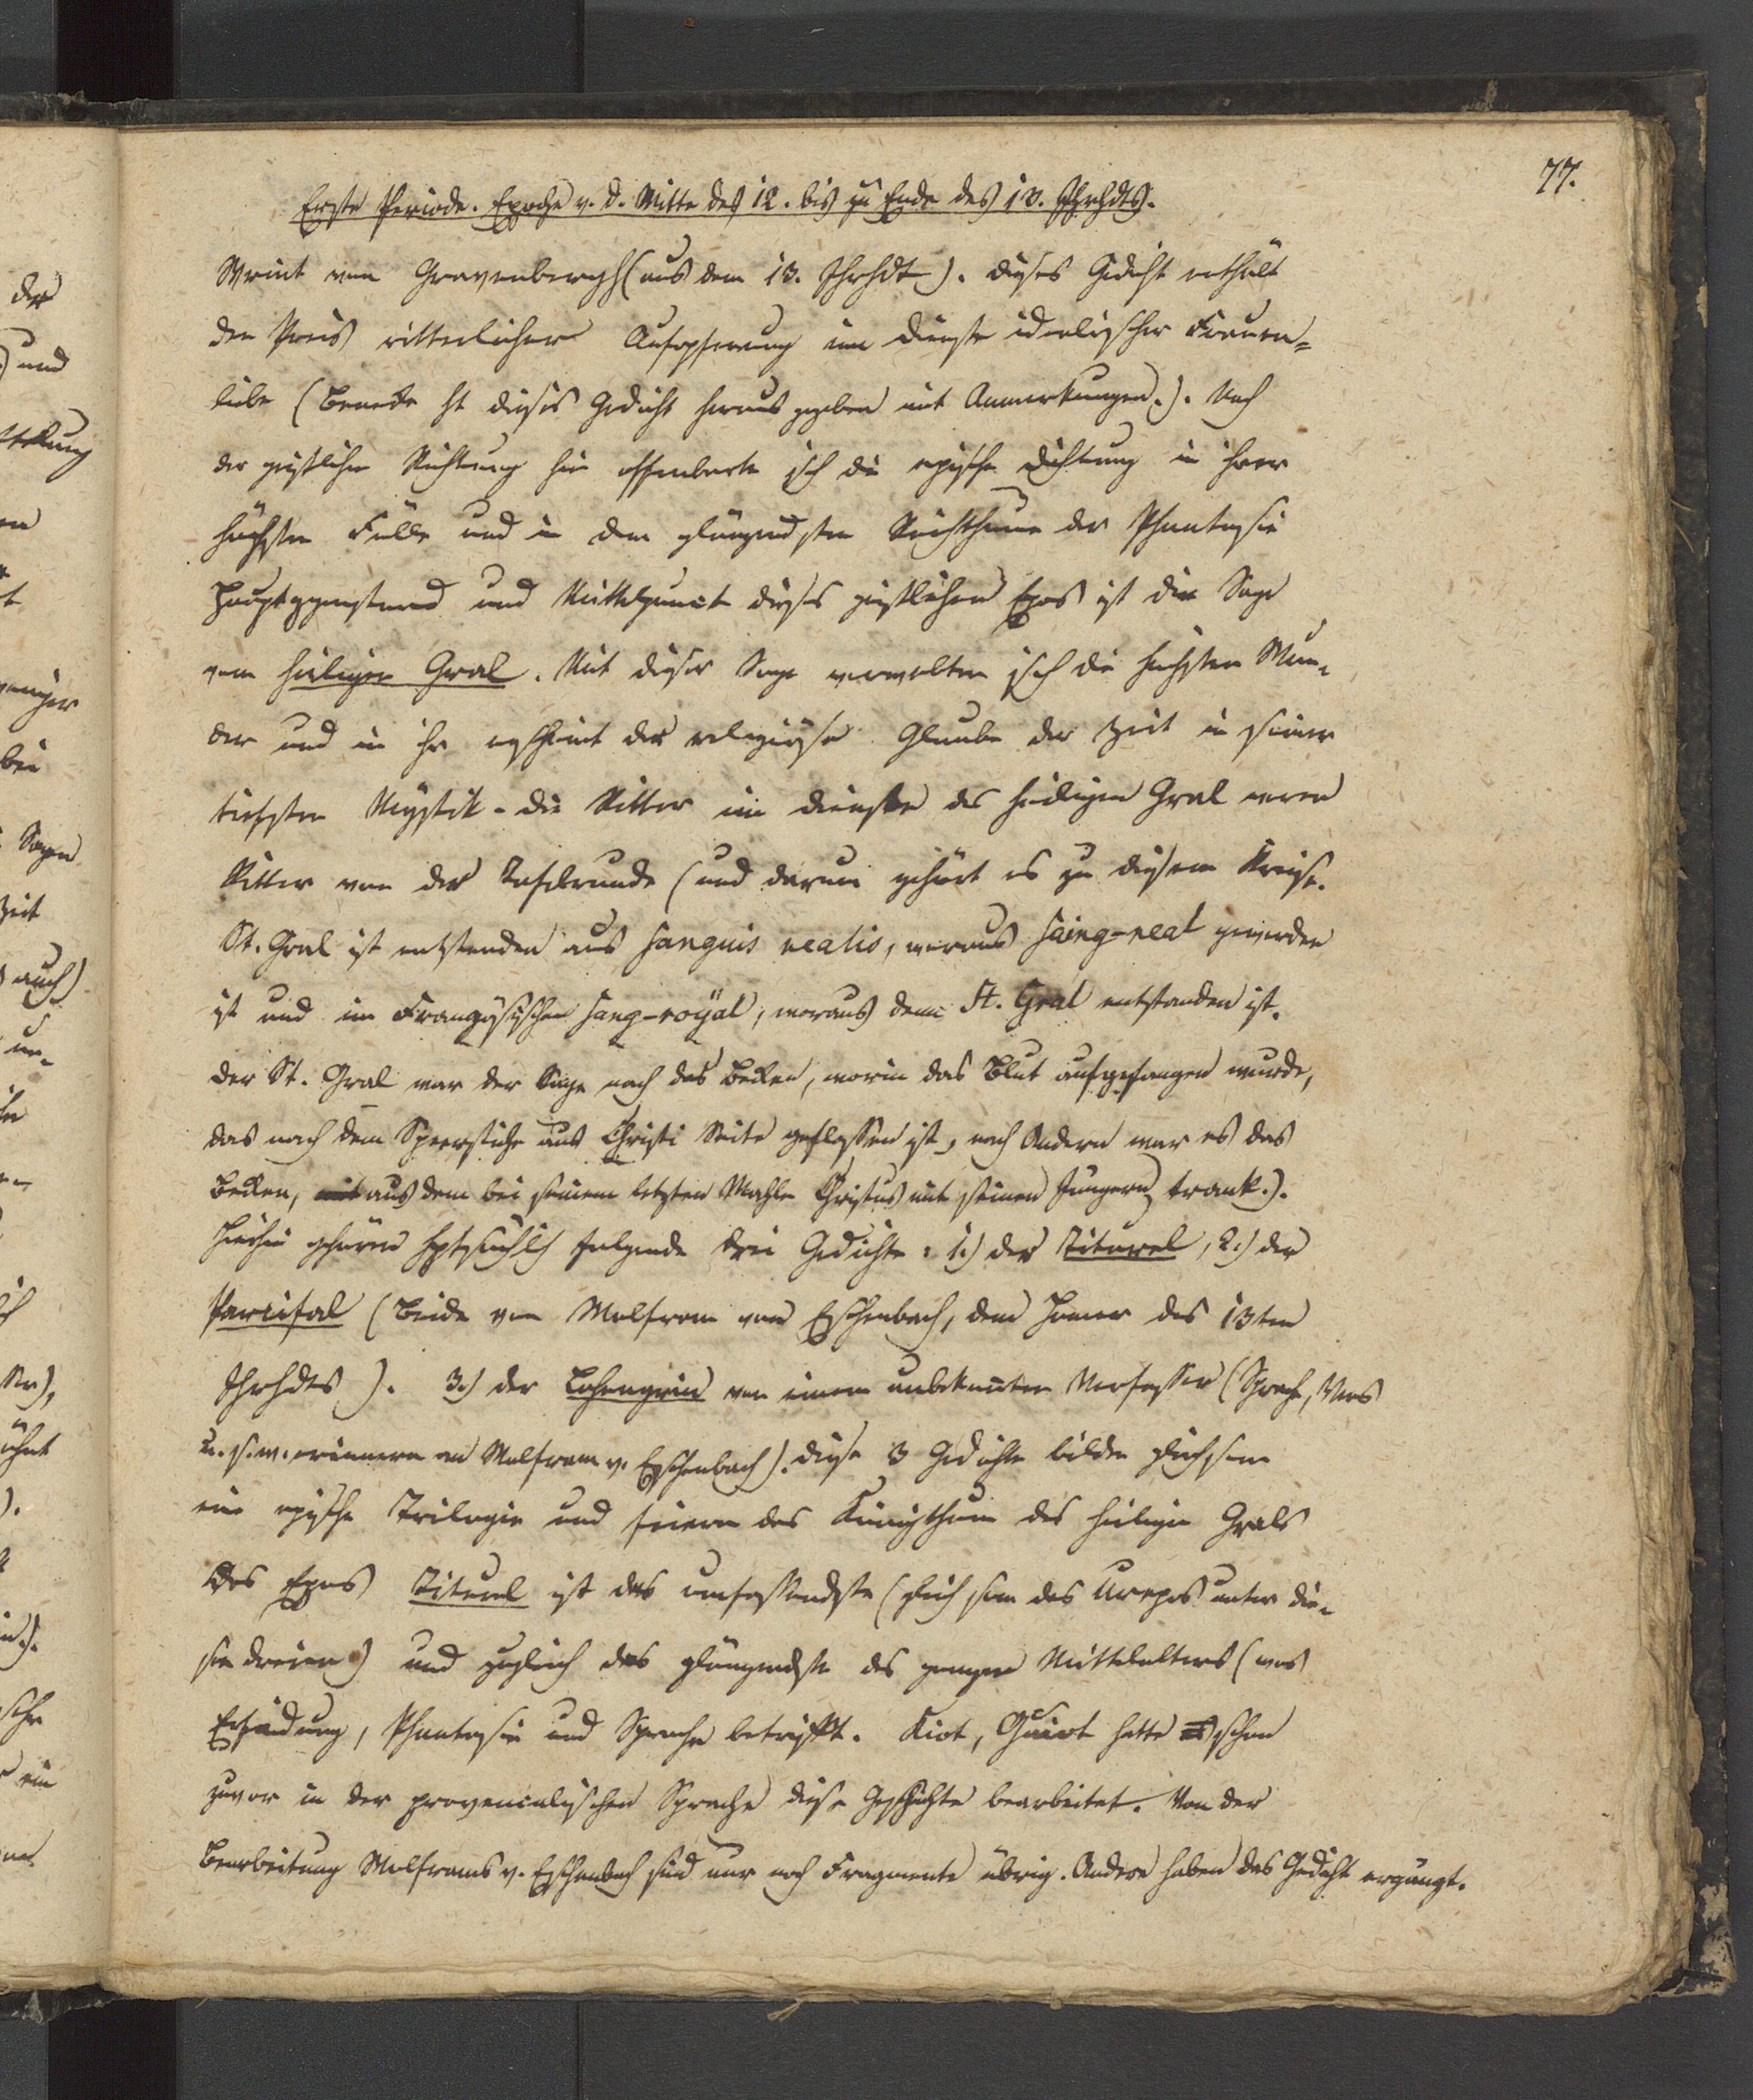 77.
Erste Periode. Epoche v. d. Mitte des 12. bis zu Ende des 13. Jhrhdts.
Wirint von Gravenbergh (aus dem 13. Jhrhdt). dieses Gedicht enthält
den Preis ritterlicher Aufopferung im Dienste idealischer Frauen=
liebe (Benecke ht dieses Gedicht heraus gegeben mit Anmerkungen.). Nach
der geistlichen Richtung hin offenbarte sich die epische Dichtung in ihrer
höchsten Fülle und in dem glänzendsten Reichthume der Phantasie
Hauptgegenstand und Mittelpunct dieses geistlichen Epos ist die Sage
vom heiligen Gral. Mit dieser Sage verwebten sich die höchsten Wun-
der und in ihr erscheint der religiöse Glaube der Zeit in seiner
tiefsten Mystik - die Ritter im Dienste des heiligen Gral waren
Ritter von der Tafelrunde (und darum gehört es zu diesem Kreise.
St. Gral ist entstanden aus sanguis realis, woraus saing-real geworden
ist und im Französischen sang-royal, woraus dann St. Gral entstanden ist.
der St. Gral war der Sage nach das Becken, worin das Blut aufgefangen wurde,
das nach dem Speerstiche aus Christi Seite geflossen ist, nach Andern war es das
Becken, aus dem bei seinem letzten Mahle Christus mit seinen Jüngern trank.).
Hierhin gehören hptsächlich folgende drei Gedichte: 1.) der Titurel, 2.) der
Parcifal (Beide von Wolfram von Eschenbach, dem Homer des 13ten
Jhrhdts ). 3.) der Lohengrin von einem unbekannten Verfasser (Sprache, Vers
u. s. w. erinnern an Wolfram v. Eschenbach). diese 3 Gedichte bilden gleichsam
eine epische Trilogie und feiern das Königthum des heiligen Grals
Das Epos Titurel ist das umfassendste (gleichsam das Urepos unter die-
sen dreien) und zugleich das glänzendste des ganzen Mittelalters (was
Erfindung, Phantasie und Sprache betrifft. Kiot, Guiot hatte schon
zuvor in der provencalischen Sprache diese Geschichte bearbeitet. Von der
Bearbeitung Wolframs v. Eschenbach sind nur noch Fragmente übrig. Andere haben das Gedicht ergänzt.